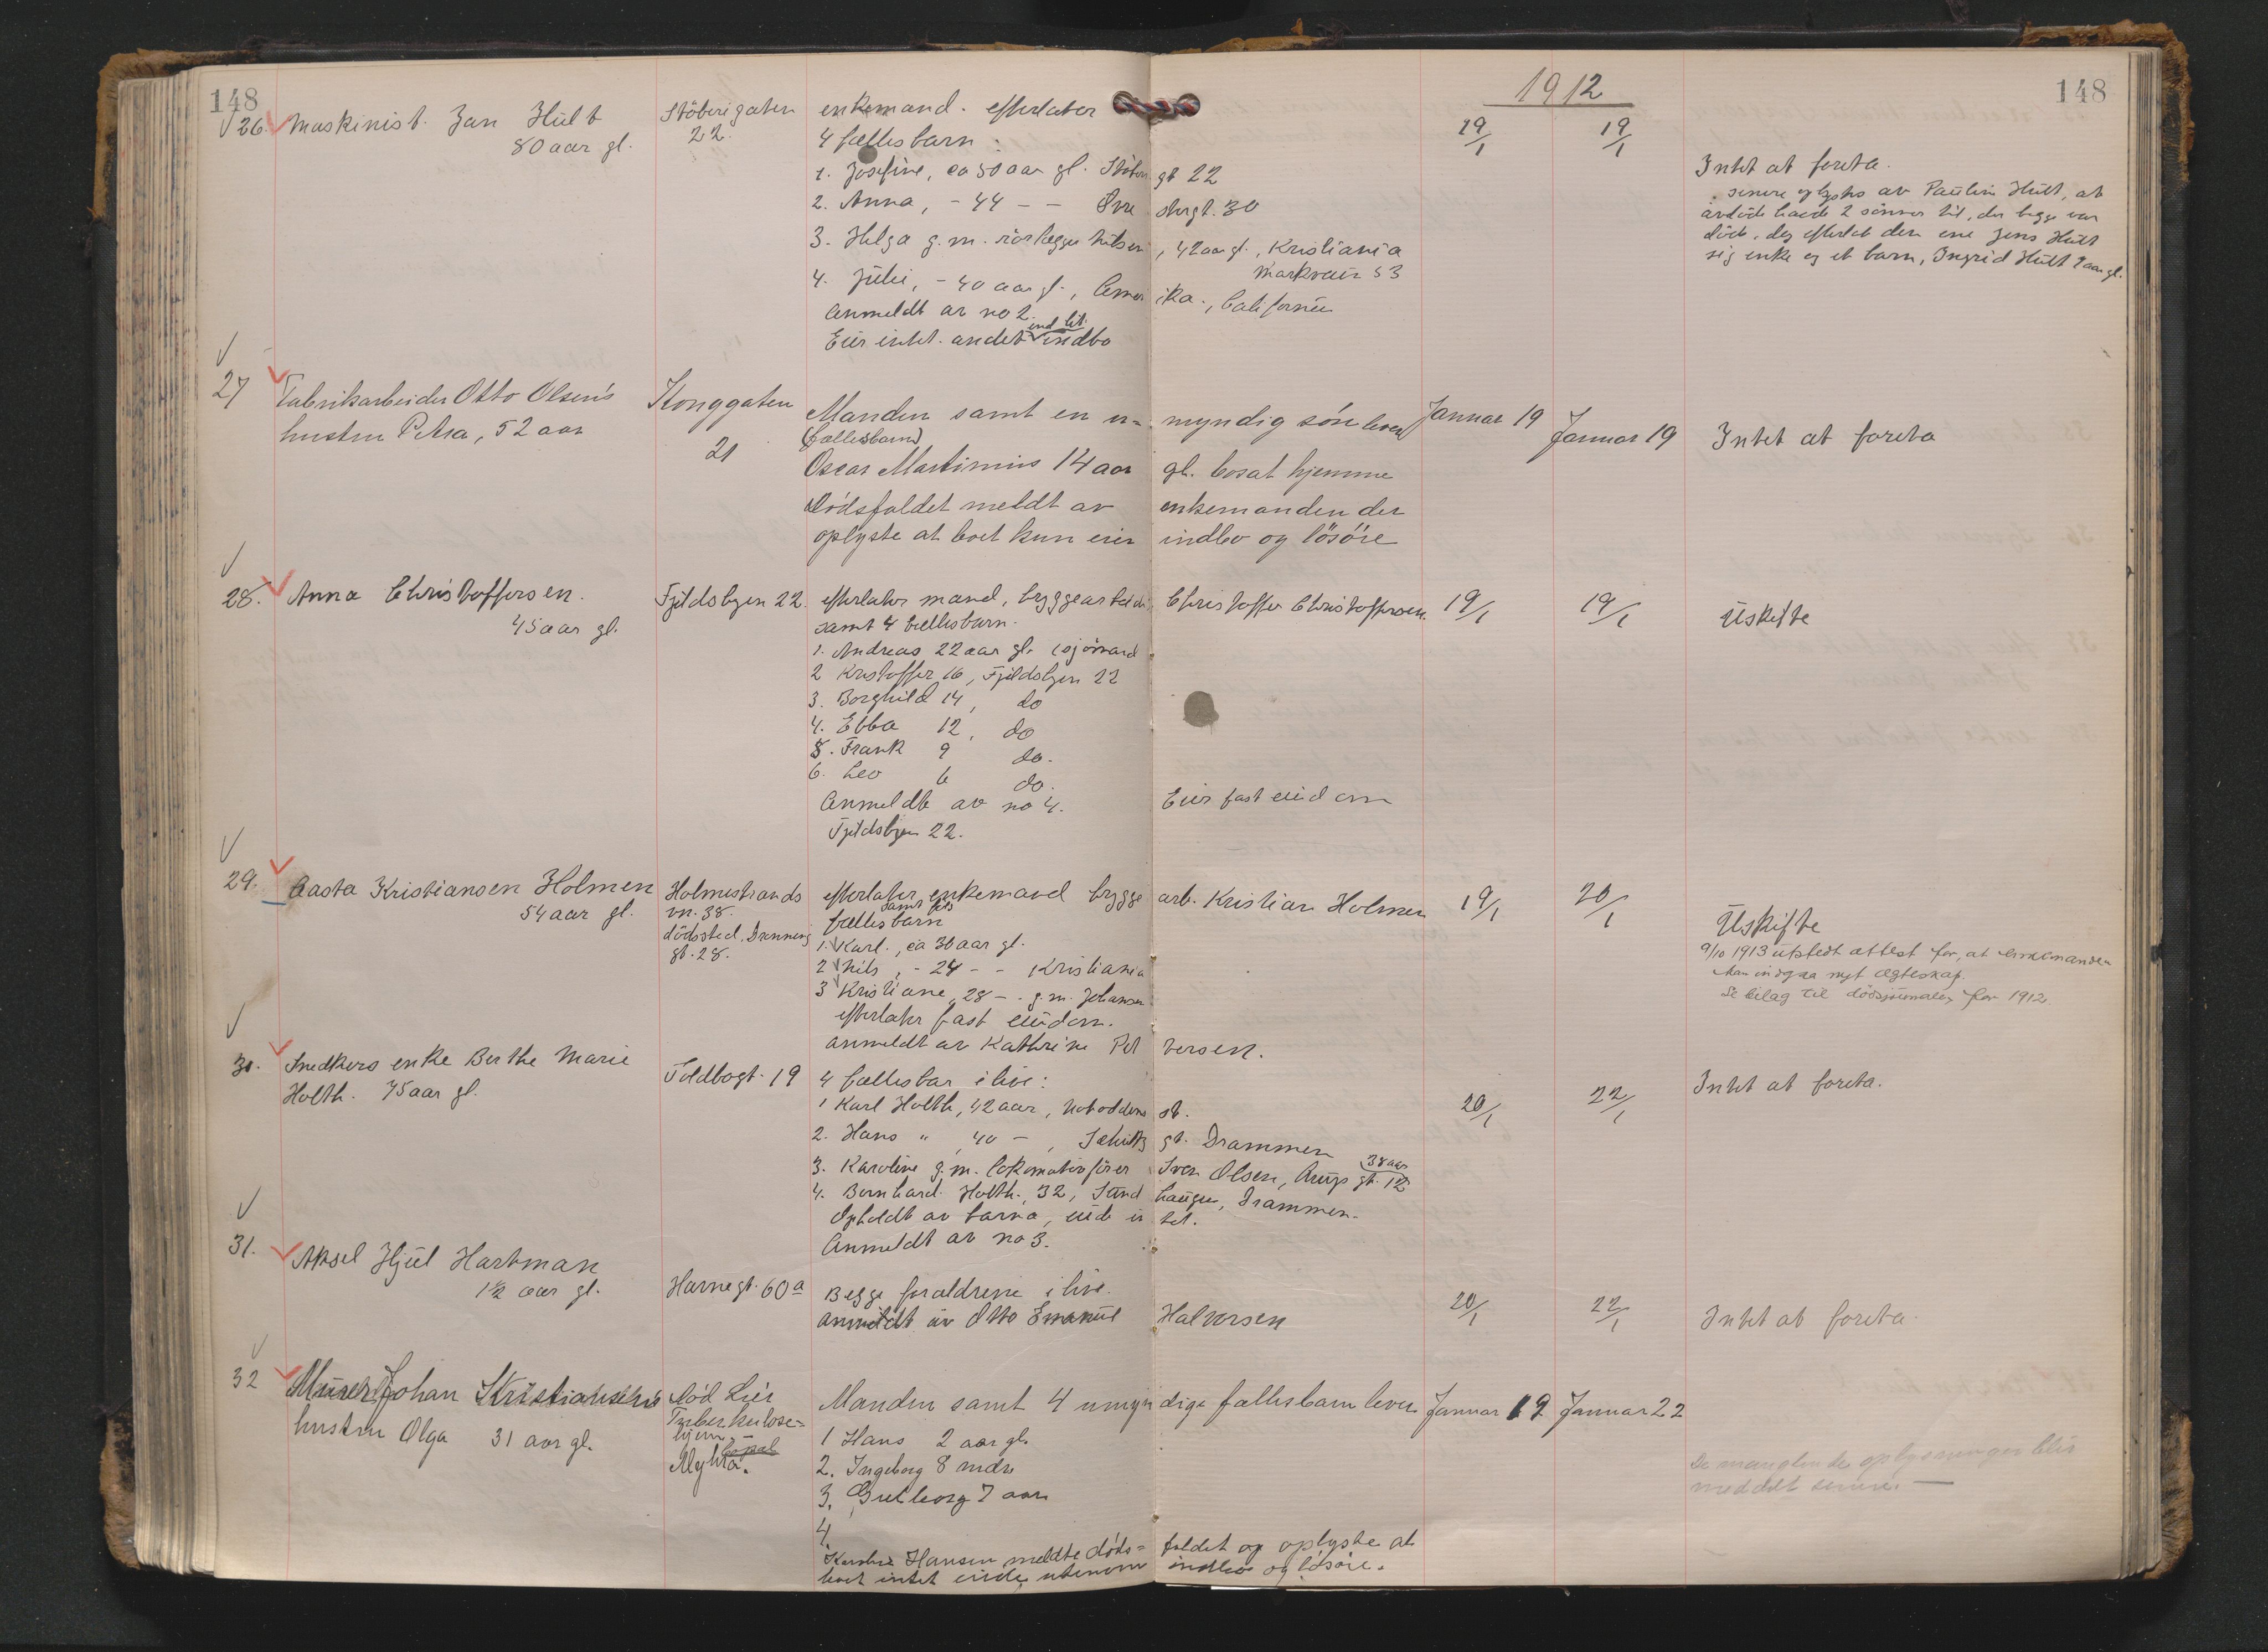 148
1912
148
26. Maskinist Jan Hült
80 aar gl.
Stöberigaten
22.
enkemand. efterlater
4 fællesbarn:
1. Josefine, ca 50 aar gl. Stöberi gt 22
2. Anna, - 44 - - Øvre Storgt. 30
3. Helga g.m. rörlægger Nilsen, 42 aar gl., Kristiania
Markvein 53
4. Julie, - 40 aar gl., Amerika., Californien
Anmeldt av no 2.
Eier intet andet end lit indbo
19/1
19/1
Intet at foreta.
senere oplystes av Pauline Hült, at
avdöde havde 2 sönner til, der begge var
döde, dog efterlot den ene Jens Hült
sig enke og et barn, Ingrid Hült 9 aar gl.
27
Fabrikarbeider Otto Olsen's
hustru Petra, 52 aar
Konggaten
21
Manden samt en umyndig sön lever
(fællesbarn)
Oscar Martinius 14 aar gl. bosat hjemme
Dödsfaldet meldt av enkemanden der
oplyste at boet kun eier indbo og lösöre
Januar 19
Januar 19
Intet at foreta
28. Anna Christoffersen.
45 aar gl.
Fjeldsbyen 22.
efterlater mand, bryggearbeider Christoffer Christoffersen.
samt 4 fællesbarn.
1. Andreas 22 aar gl. (sjömand
2 Kristoffer 16, Fjeldsbyen 22
3. Borghild 14, do
4. Ebba 12, do
5. Frank 9 do.
6. Leo 6 do.
Anmeldt av no 4. Eier fast eiendom
Fjeldsbyen 22.
19/1
19/1
Uskifte
29. Aasta Kristiansen Holmen
54 aar gl.
Holmestrands
vn. 38.
dödssted, Dronning
gt. 28.
efterlater enkemand brygge arb. Kristian Holmen
samt
fællesbarn
1. Karl., ca 30 aar gl.
2 Nils, - 24 - - Kristiania
3 Kristiane, 28 - . g.m. Johansen
efterlater fast eiendom.
anmeldt av Kathrine Pettersen.
19/1
20/1
Uskifte
9/10 1913 utstedt attest for, at enkemanden
kan indgaa nyt ægteskap.
Se bilag til dödsjournalen for 1912.
30. Snedkers enke Berthe Marie
Holth. 75 aar gl.
Toldbogt. 19
4 fællesbar i live:
1 Karl Holth, 42 aar, Notoddens st.
2. Hans " , 40 - , Schultz gt. Drammen
3. Karoline g.m. lokomotivförer Sven Olsen, Arups gt. 12
38 aar
4. Bernhard Holth, 32, Sand haugen, Drammen.
Opholdt av barna, eiede intet.
Anmeldt av no 3.
20/1
22/1
Intet at foreta.
31. Aksel Hjul Hartman
1½ aar gl.
Havnegt. 60 a
Begge foraldrene i live.
anmeldt av Otto Emanuel Halvorsen
20/1
22/1
Intet at foreta.
32
Murer Johan Kristiansens
hustru Olga 31 aar gl.
död Lier
Tuberkulose-
hjem, -
Myhra.
Manden samt 4 umyndige fællesbarn lever
1 Hans 2 aar gl.
2. Ingeborg 8 mdr
3. Gudborg 7 aar
4.
Hansen meldte dödsfaldet og oplyste at
boet intet eiede utenom indbo og lösöre.
Januar 19.
Januar 22
De manglende oplysninger blir
meddelt senere. -